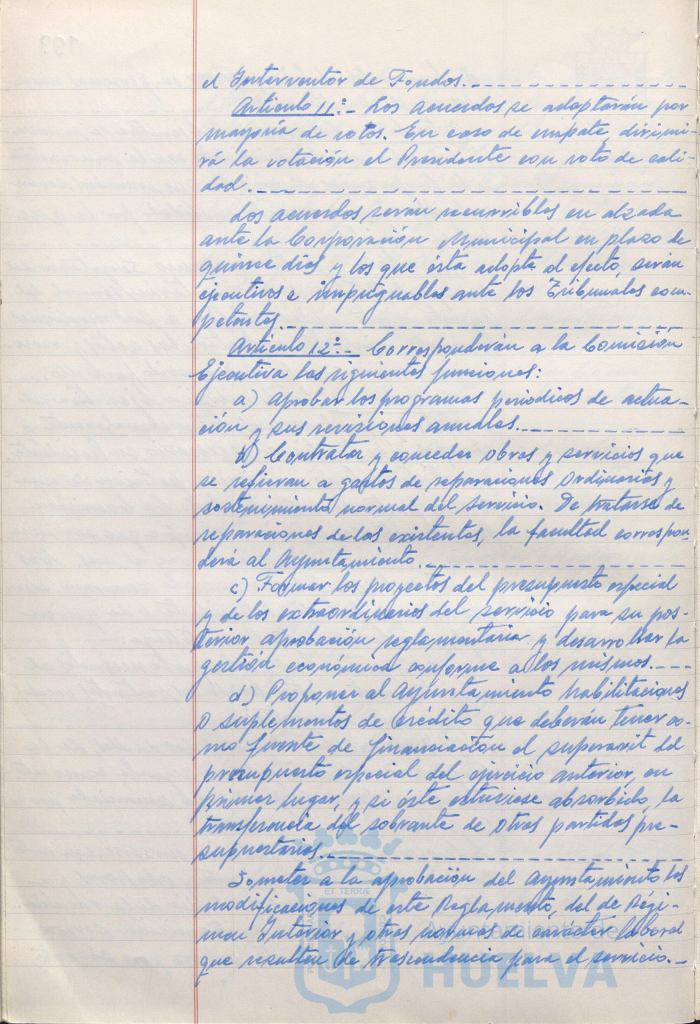 el Interventor de Fondos.
Artículo 11º.- Los acuerdos se adoptarán por
mayoría de votos. En caso de empate, dirimi-
rá la votación el Presidente con voto de cali-
dad.
Los acuerdos serán recurribles en alzada
ante la Corporación Municipal en plazo de
quince días y los que ésta adopte al efecto, serán
ejecutivos e impugnables ante los Tribunales com-
petentes.
Artículo 12º.- Corresponderán a la Comisión
Ejecutiva las siguientes funciones:
a) Aprobar los programas periódicos de actua-
ción y sus revisiones anuales.
b) Contratar y conceder obras y servicios que
se refieran a gastos de reparaciones ordinarios y
sostenimiento normal del servicio. De tratarse de
reparaciones de las existentes, la facultad correspon
derá al Ayuntamiento.
c) Formar los proyectos del presupuesto especial
y de los extraordinarios del servicio para su pos-
terior aprobación reglamentaria y desarrollar la
gestión económica conforme a los mismos.
d) Proponer al Ayuntamiento habilitaciones
o suplementos de crédito que deberán tener co-
mo fuente de financiación el superavit del
presupuesto especial del ejercicio anterior, en
primer lugar, y si éste estuviese absorbido, la
transferencia del sobrante de otras partidas pre-
supuestarias.
Someter a la aprobación del Ayuntamiento las
modificaciones de este Reglamento, del de Régi-
men Interior y otras normas de carácter laboral
que resulten de trascendencia para el servicio.-
ET TERRÆ
HUELVA